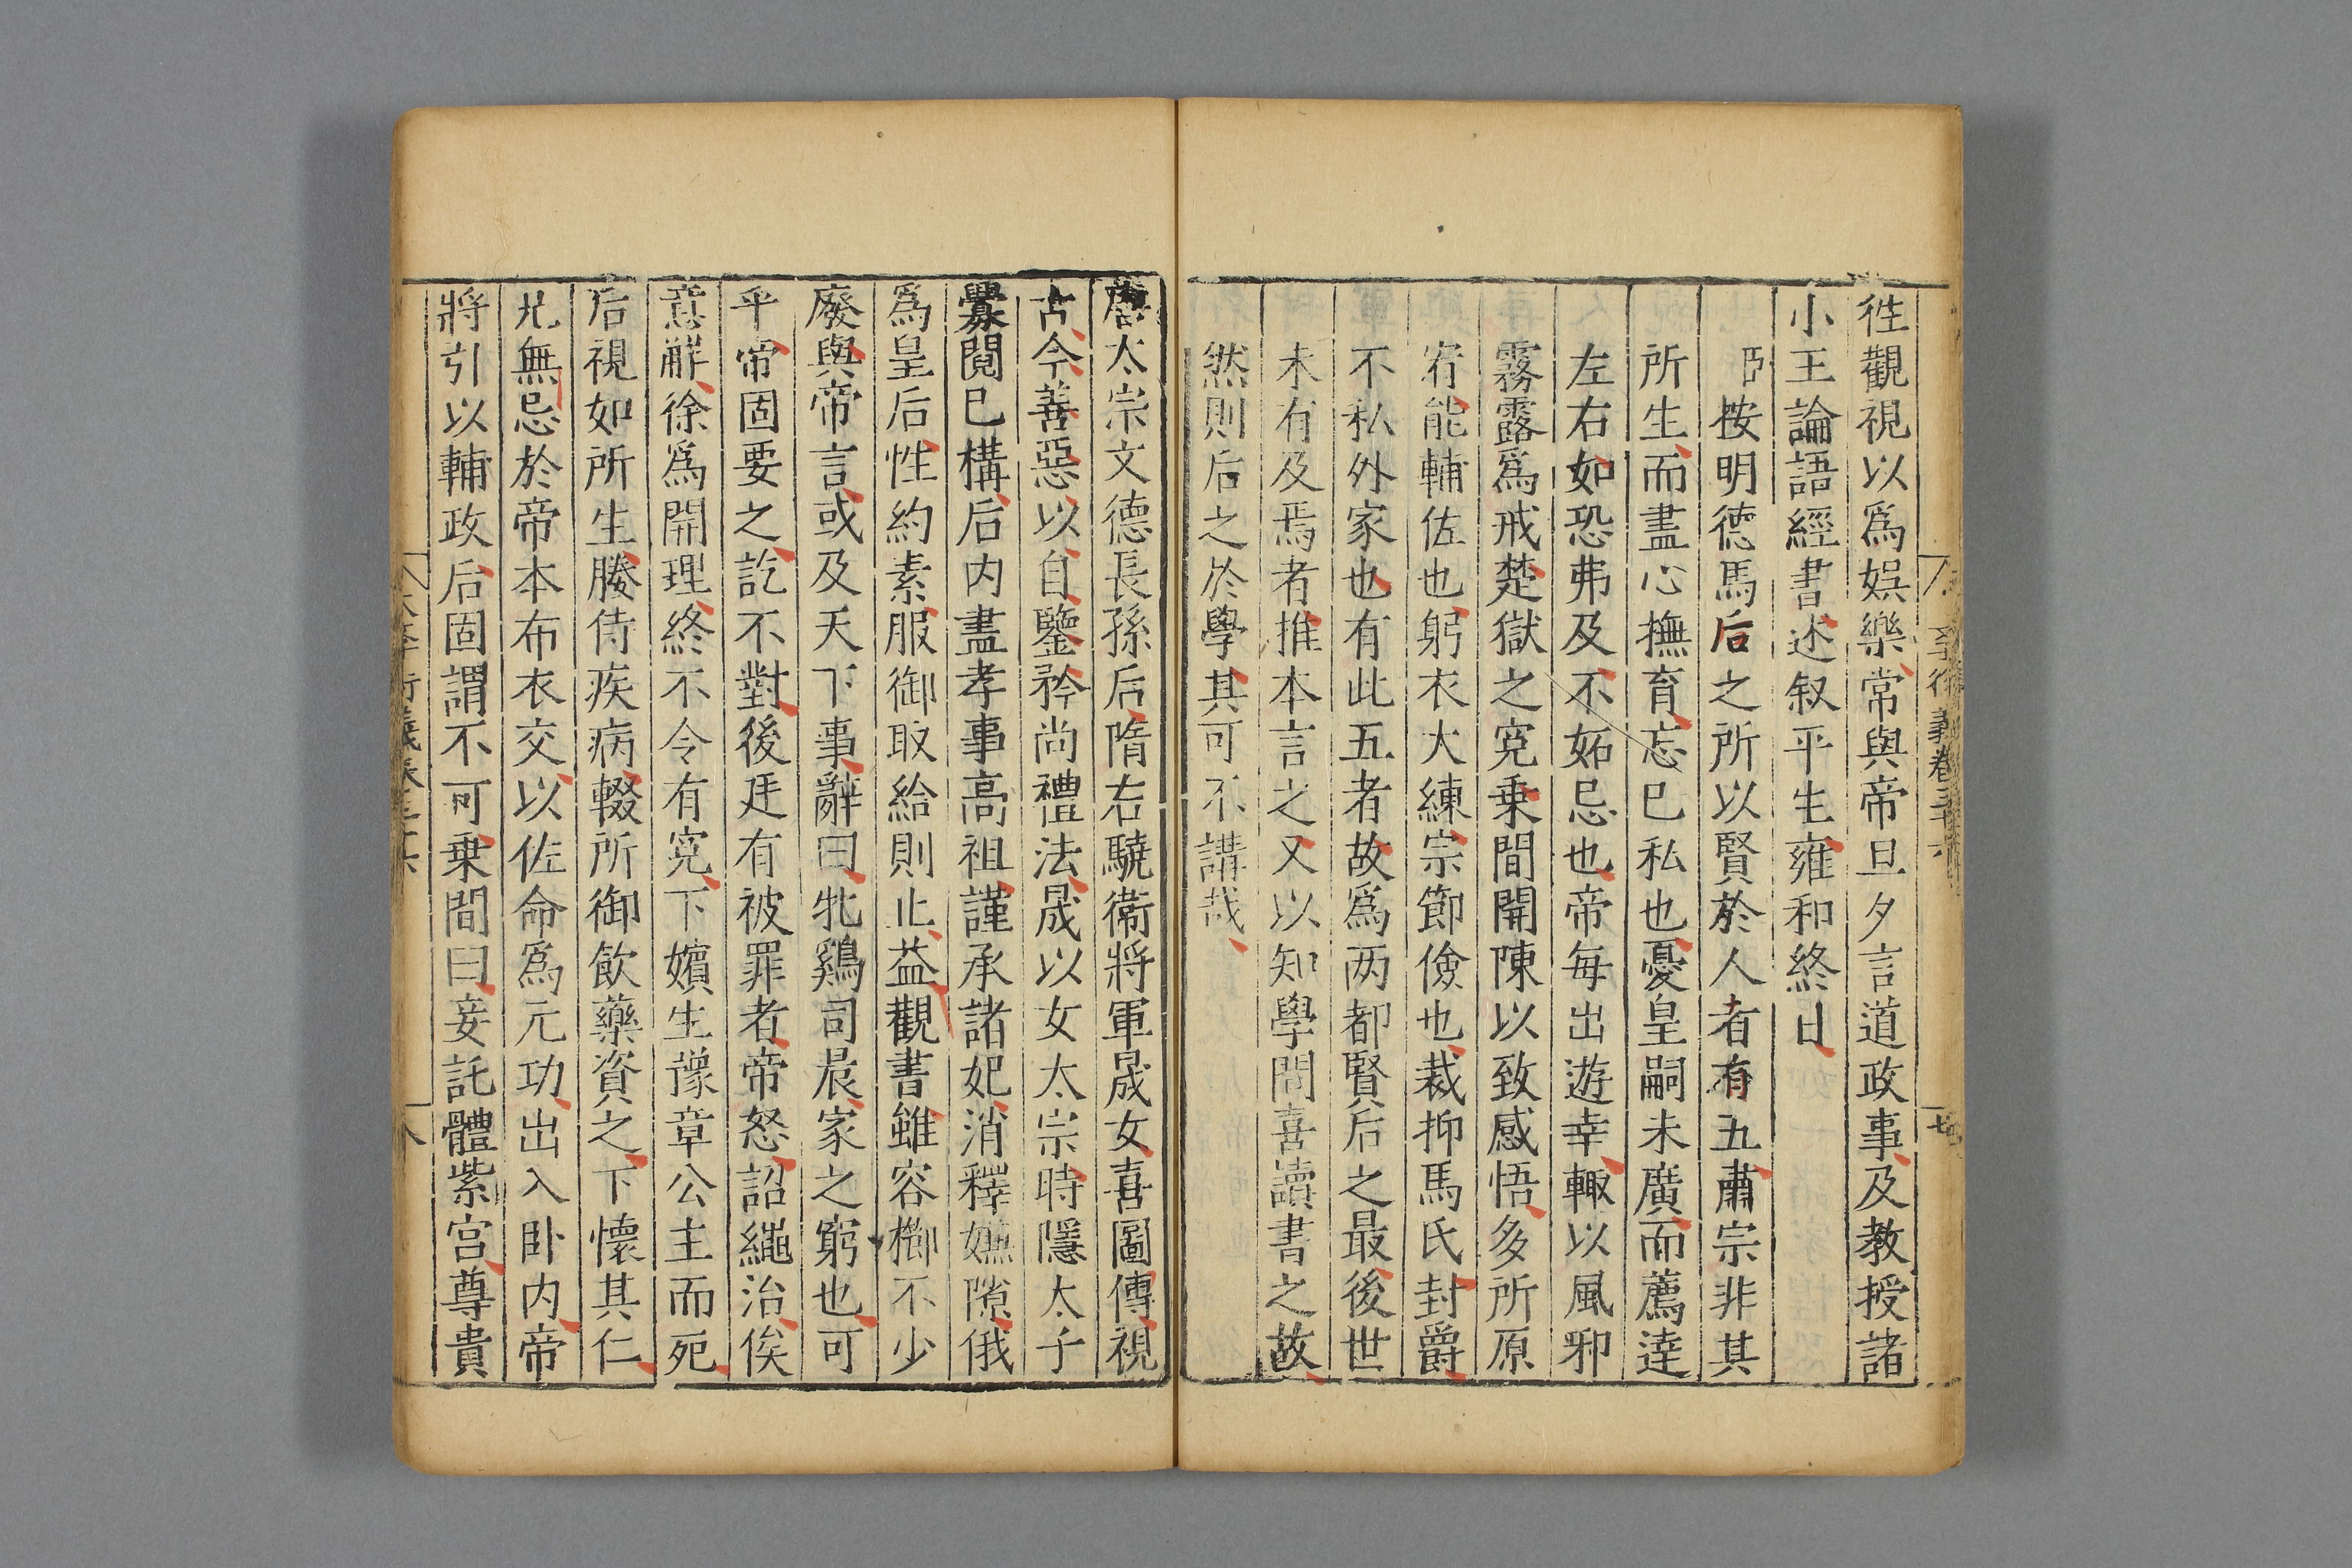 徃觀視以爲娯樂常與帝旦夕言道政事及教授諸
小王論語經書述叙平生雍和終日
臣按明徳馬后之所以賢於人者有五肅宗非其
所生而盡心撫育忘已私也憂皇嗣未廣而薦逹
左右如恐弗及不妬忌也帝每出遊幸輙以風邪
霧露爲戒楚獄之寃乗間開陳以致感悟多所原
宥能輔佐也躬衣大練宗節儉也裁抑馬氏封爵
不私外家也有此五者故爲两都賢后之最後世
未有及焉者推本言之又以知學問喜讀書之故
然則后之於學其可不講哉
唐太宗文德長孫后隋右驍衛將軍晟女喜圖傳視
古今善惡以自鑒矜尚禮法晟以女太宗時隱太子
釁䦧已構后内盡孝事高祖謹承諸妃消釋嫌隙俄
爲皇后性約素服御取給則止益觀書雖容櫛不少
廢與帝言或及天下事辭曰牝鷄司晨家之窮也可
乎帝固要之訖不對後廷有被罪者帝怒詔繩治俟
意解徐爲開理終不令有寃下嬪生豫章公主而死
后視如所生媵侍疾病輟所御飲藥資之下懷其仁
兄無忌於帝本布衣交以佐命爲元功出入卧内帝
將引以輔政后固謂不可乗間曰妾託體紫宫尊貴